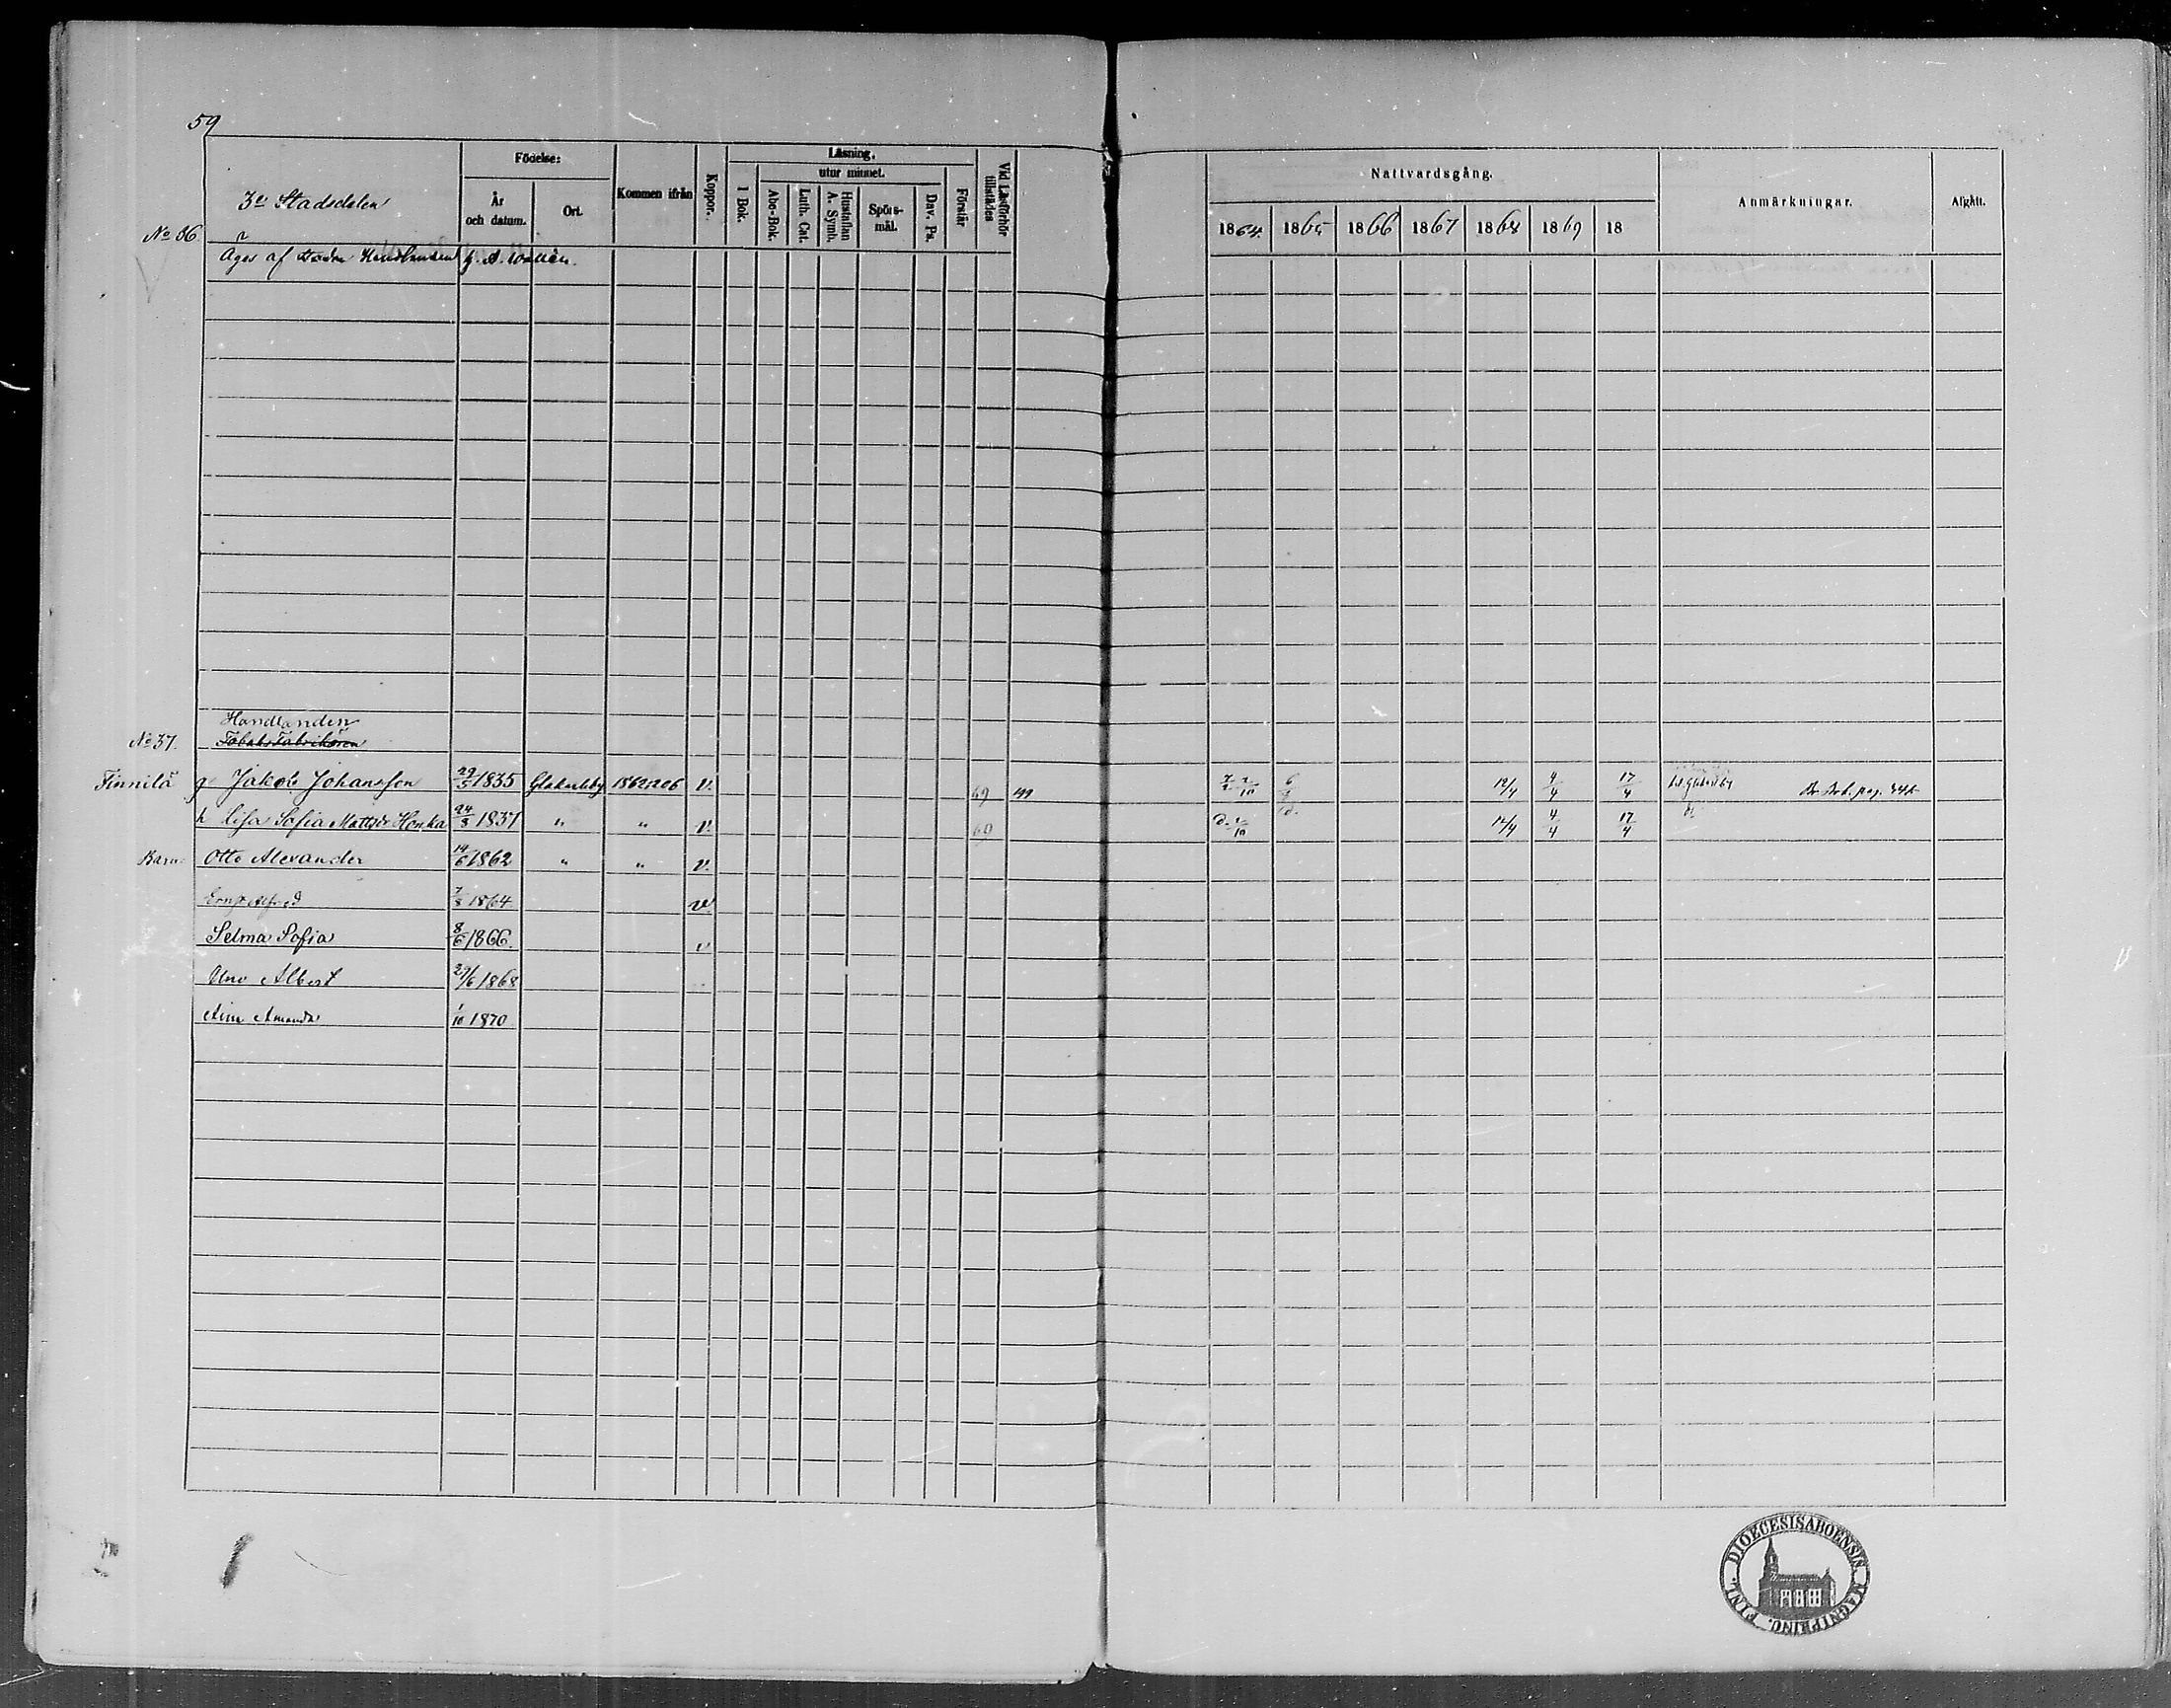 59
3e Stadsdelen
Födelse:
År och datum.
Ort.
Kommen ifrån
Koppor.
Läsning.
I Bok.
utur minnet.
Abc-Bok.
Luth. Cat.
Hustaflan A. Symb.
Spörs-mål.
Dav. Ps.
Förstår
Vid Läsförhör tillstädes
Nattvardsgång.
1864. 1865 1866 1867 1868 1869 18
Anmärkningar.
Afgått.
No 36
Äges af Handlanden
No 37.
Handlanden
Tobaks Fabrikören
Finnilä g Jakob Johansson 29/5 1835 Glakarleby 1862 206 v. 69 2/10 6 12/4 4/4 17/4 pag.
h Lisa Sofia Mattsdr Honka 24/8 1837 " " v. 2/10 12/4 4/4 17/4
Barn: Otto Alexander 14/6 1862 " " v.
Ernst Alfred 7/8 1864 v.
Selma Sofia 8/6 1866. v
Uno Albert 27/6 1868
Amanda 1/10 1870
DIOECESIS ABOENSIS MAGNI PRINC. FINL.